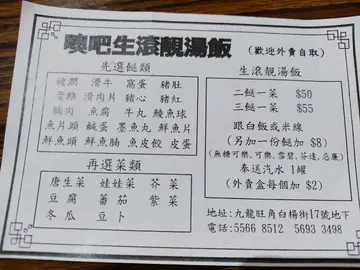 噢吧生滾靚湯飯 (歡迎外賣自取)
先選餸類
豬潤 滑牛 窩蛋 豬肚
滑雞 滑肉片 豬心 豬紅
腩肉 魚腐 牛丸 鯪魚球
魚片頭 鹹蛋 墨魚丸 鮮魚片
鮮魚頭 鮮魚腩 魚皮餃 皮蛋
再選菜類
唐生菜 娃娃菜 芥菜
豆腐 蕃茄 紫菜
冬瓜 豆卜
生滾靚湯飯
二餸一菜 $50
三餸一菜 $55
跟白飯或米線
(另加一份餸加 $8)
(無糖可樂,可樂,雪碧,芬達,忌廉)
奉送汽水 1罐
(外賣盒每個加 $2)
地址:九龍旺角白楊街17號地下
電話:5566 8512 5693 3498